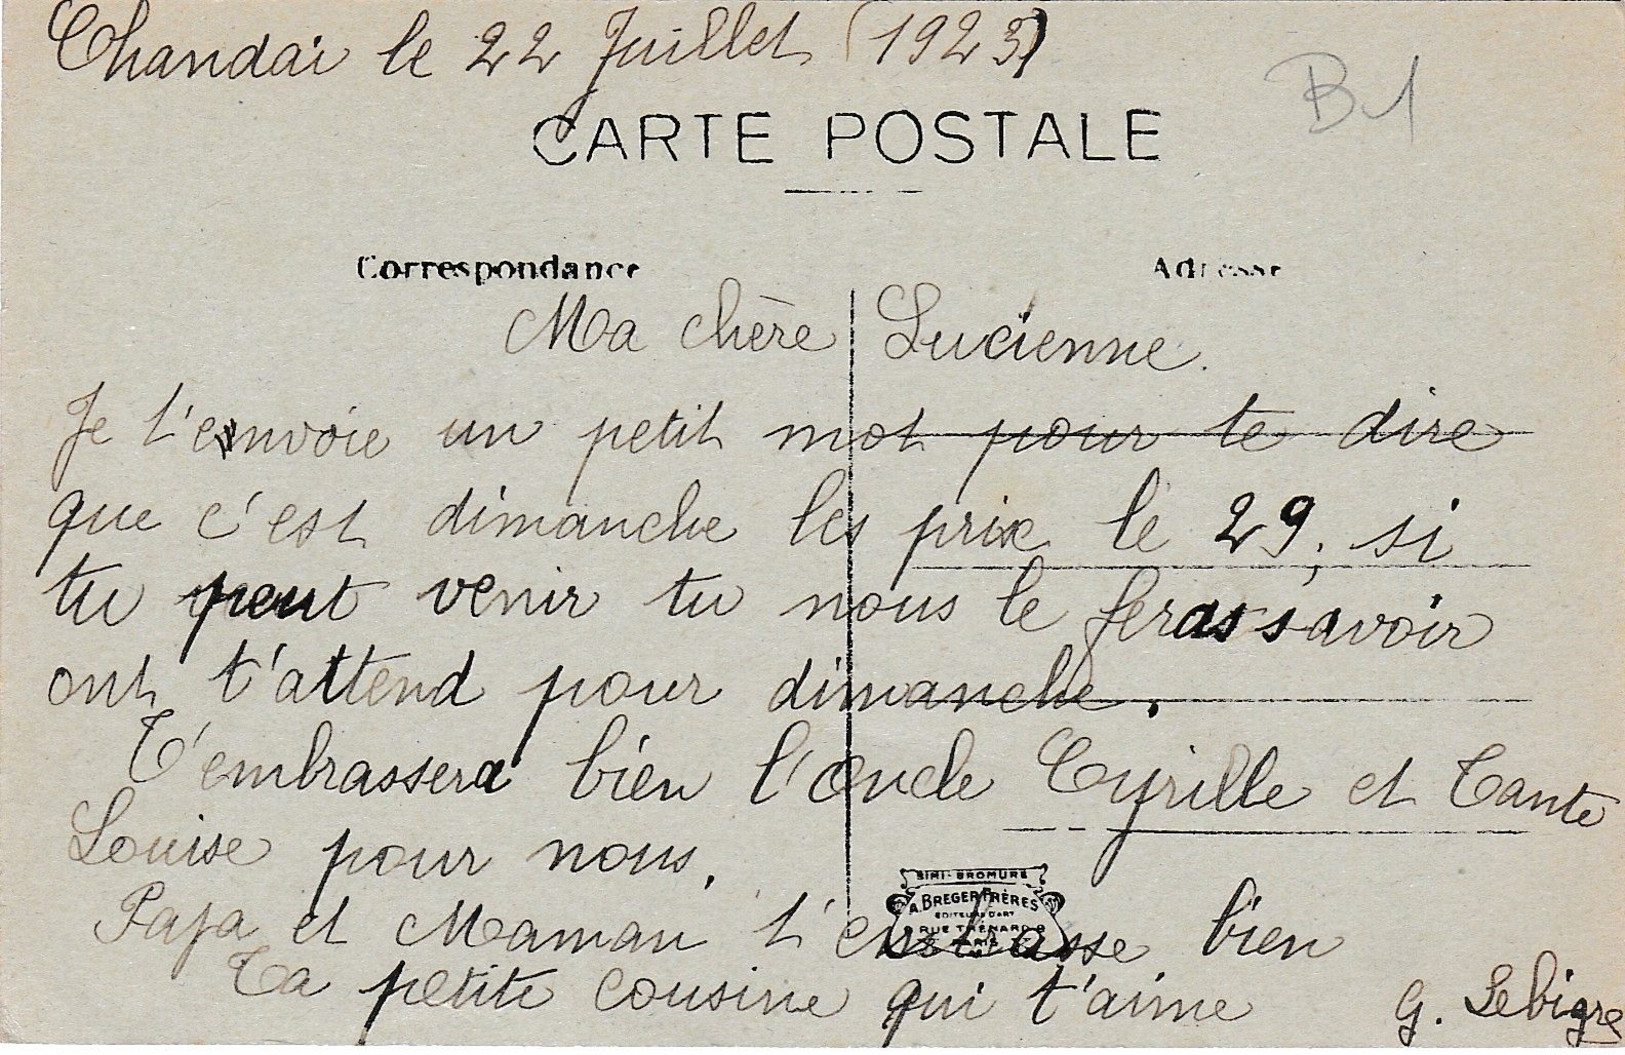 Chandai le 22 Juillet (1923)
B1
CARTE POSTALE
Correspondance Adresse
Ma chère Lucienne.
Je t'envoie un petit mot pour te dire
que c'est dimanche les prix le 29, si
tu peut venir tu nous le feras savoir
ont t'attend pour dimanche.
T'embrassera bien l'Oncle Cyrille et Tante
Louise pour nous.
SIMI-BROMURE
A. BREGER FRÈRES
EDITEURS D'ART
9 RUE THÉNARD 9
PARIS
Papa et Maman t'embrasse bien
Ta petite cousine qui t'aime
G. Lebigre